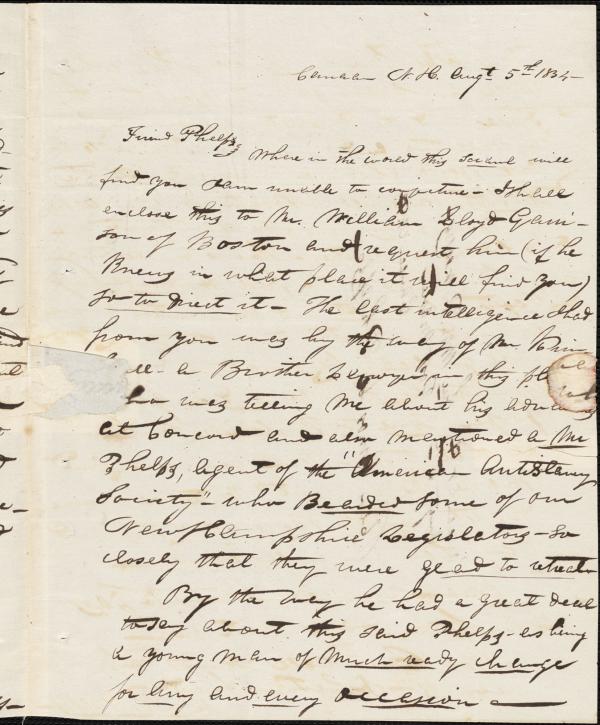 Canaan N.H. Augt 5th 1834 -
Friend Phelps,
Where in the world this will
find you I am unable to conjecture - I shall
enclose this to Mr. William Lloyd Garri-
son of Boston and request him (if he
Knows in what place it will find you)
so to direct it - The last intelligence I had
from you was by the way of Mr. Kim
ball - a Brother Lawyer in this place
who was telling me about his
at Concord and also mentioned a Mr
Phelps, Agent of the "American Antislavery
Society" - who Bearded some of our
New Hampshire Legislators - so
closely that they were glad to retreat
By the way he had a great deal
to say about this said Phelps - as being
a young man of Much ready change
for any and every occasion -